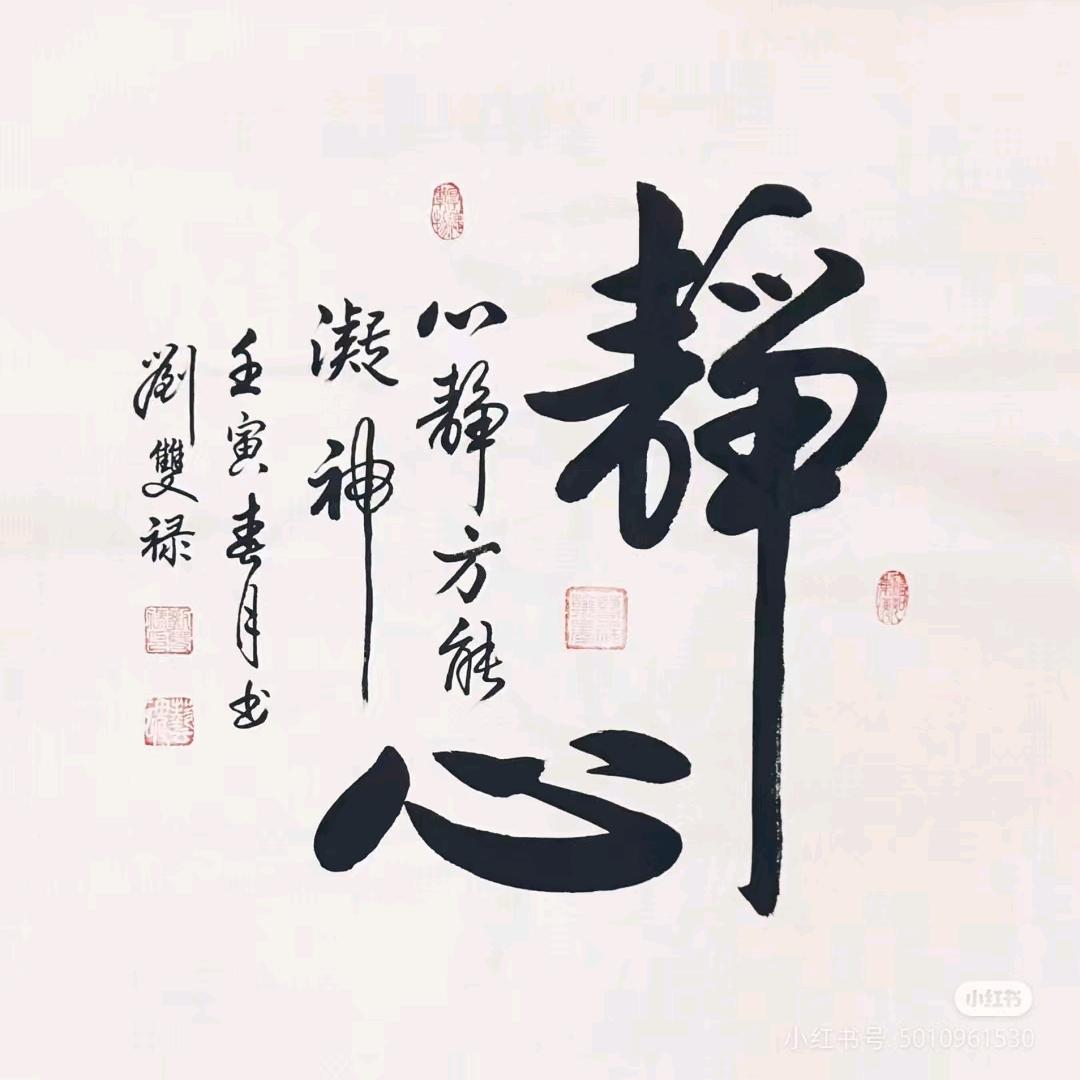 靜心
心靜方能
凝神
壬寅春月书
劉雙禄
小红书
小红书号: 5010961530